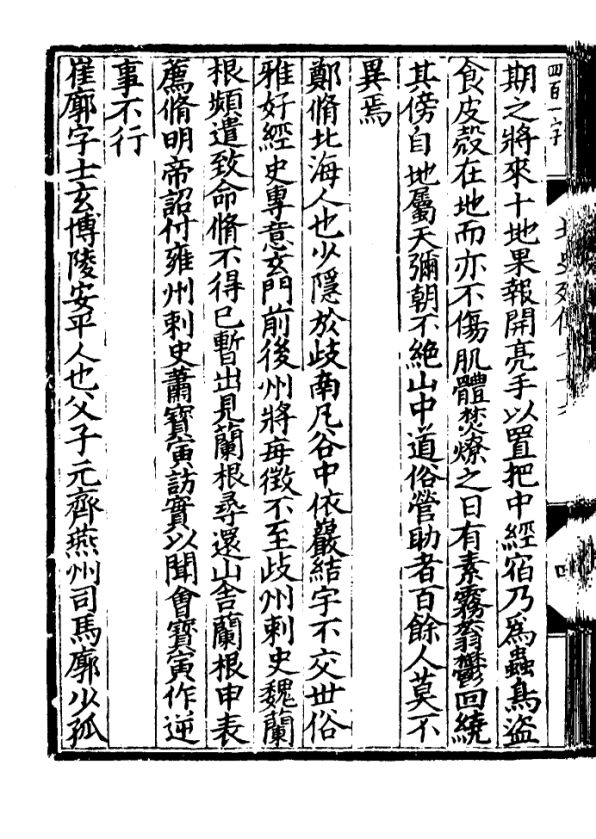 四百十六字
期之將來十地果報開亮手以置把中經宿乃爲蟲鳥盜
食皮殼在地而亦不傷肌體焚燎之日有素霧蓊鬱回繞
其傍自地屬天彌朝不絶山中道俗營助者百餘人莫不
異焉
鄭脩北海人也少隱於歧南凡谷中依巖結宇不交世俗
雅好經史專意玄門前後州將每徵不至歧州刺史魏蘭
根頻遣致命脩不得已暫出見蘭根尋還山舍蘭根申表
薦脩明帝詔付雍州刺史蕭寶寅訪實以聞會寶寅作逆
事不行
崔廓字士玄博陵安平人也父子元齊燕州司馬廓少孤